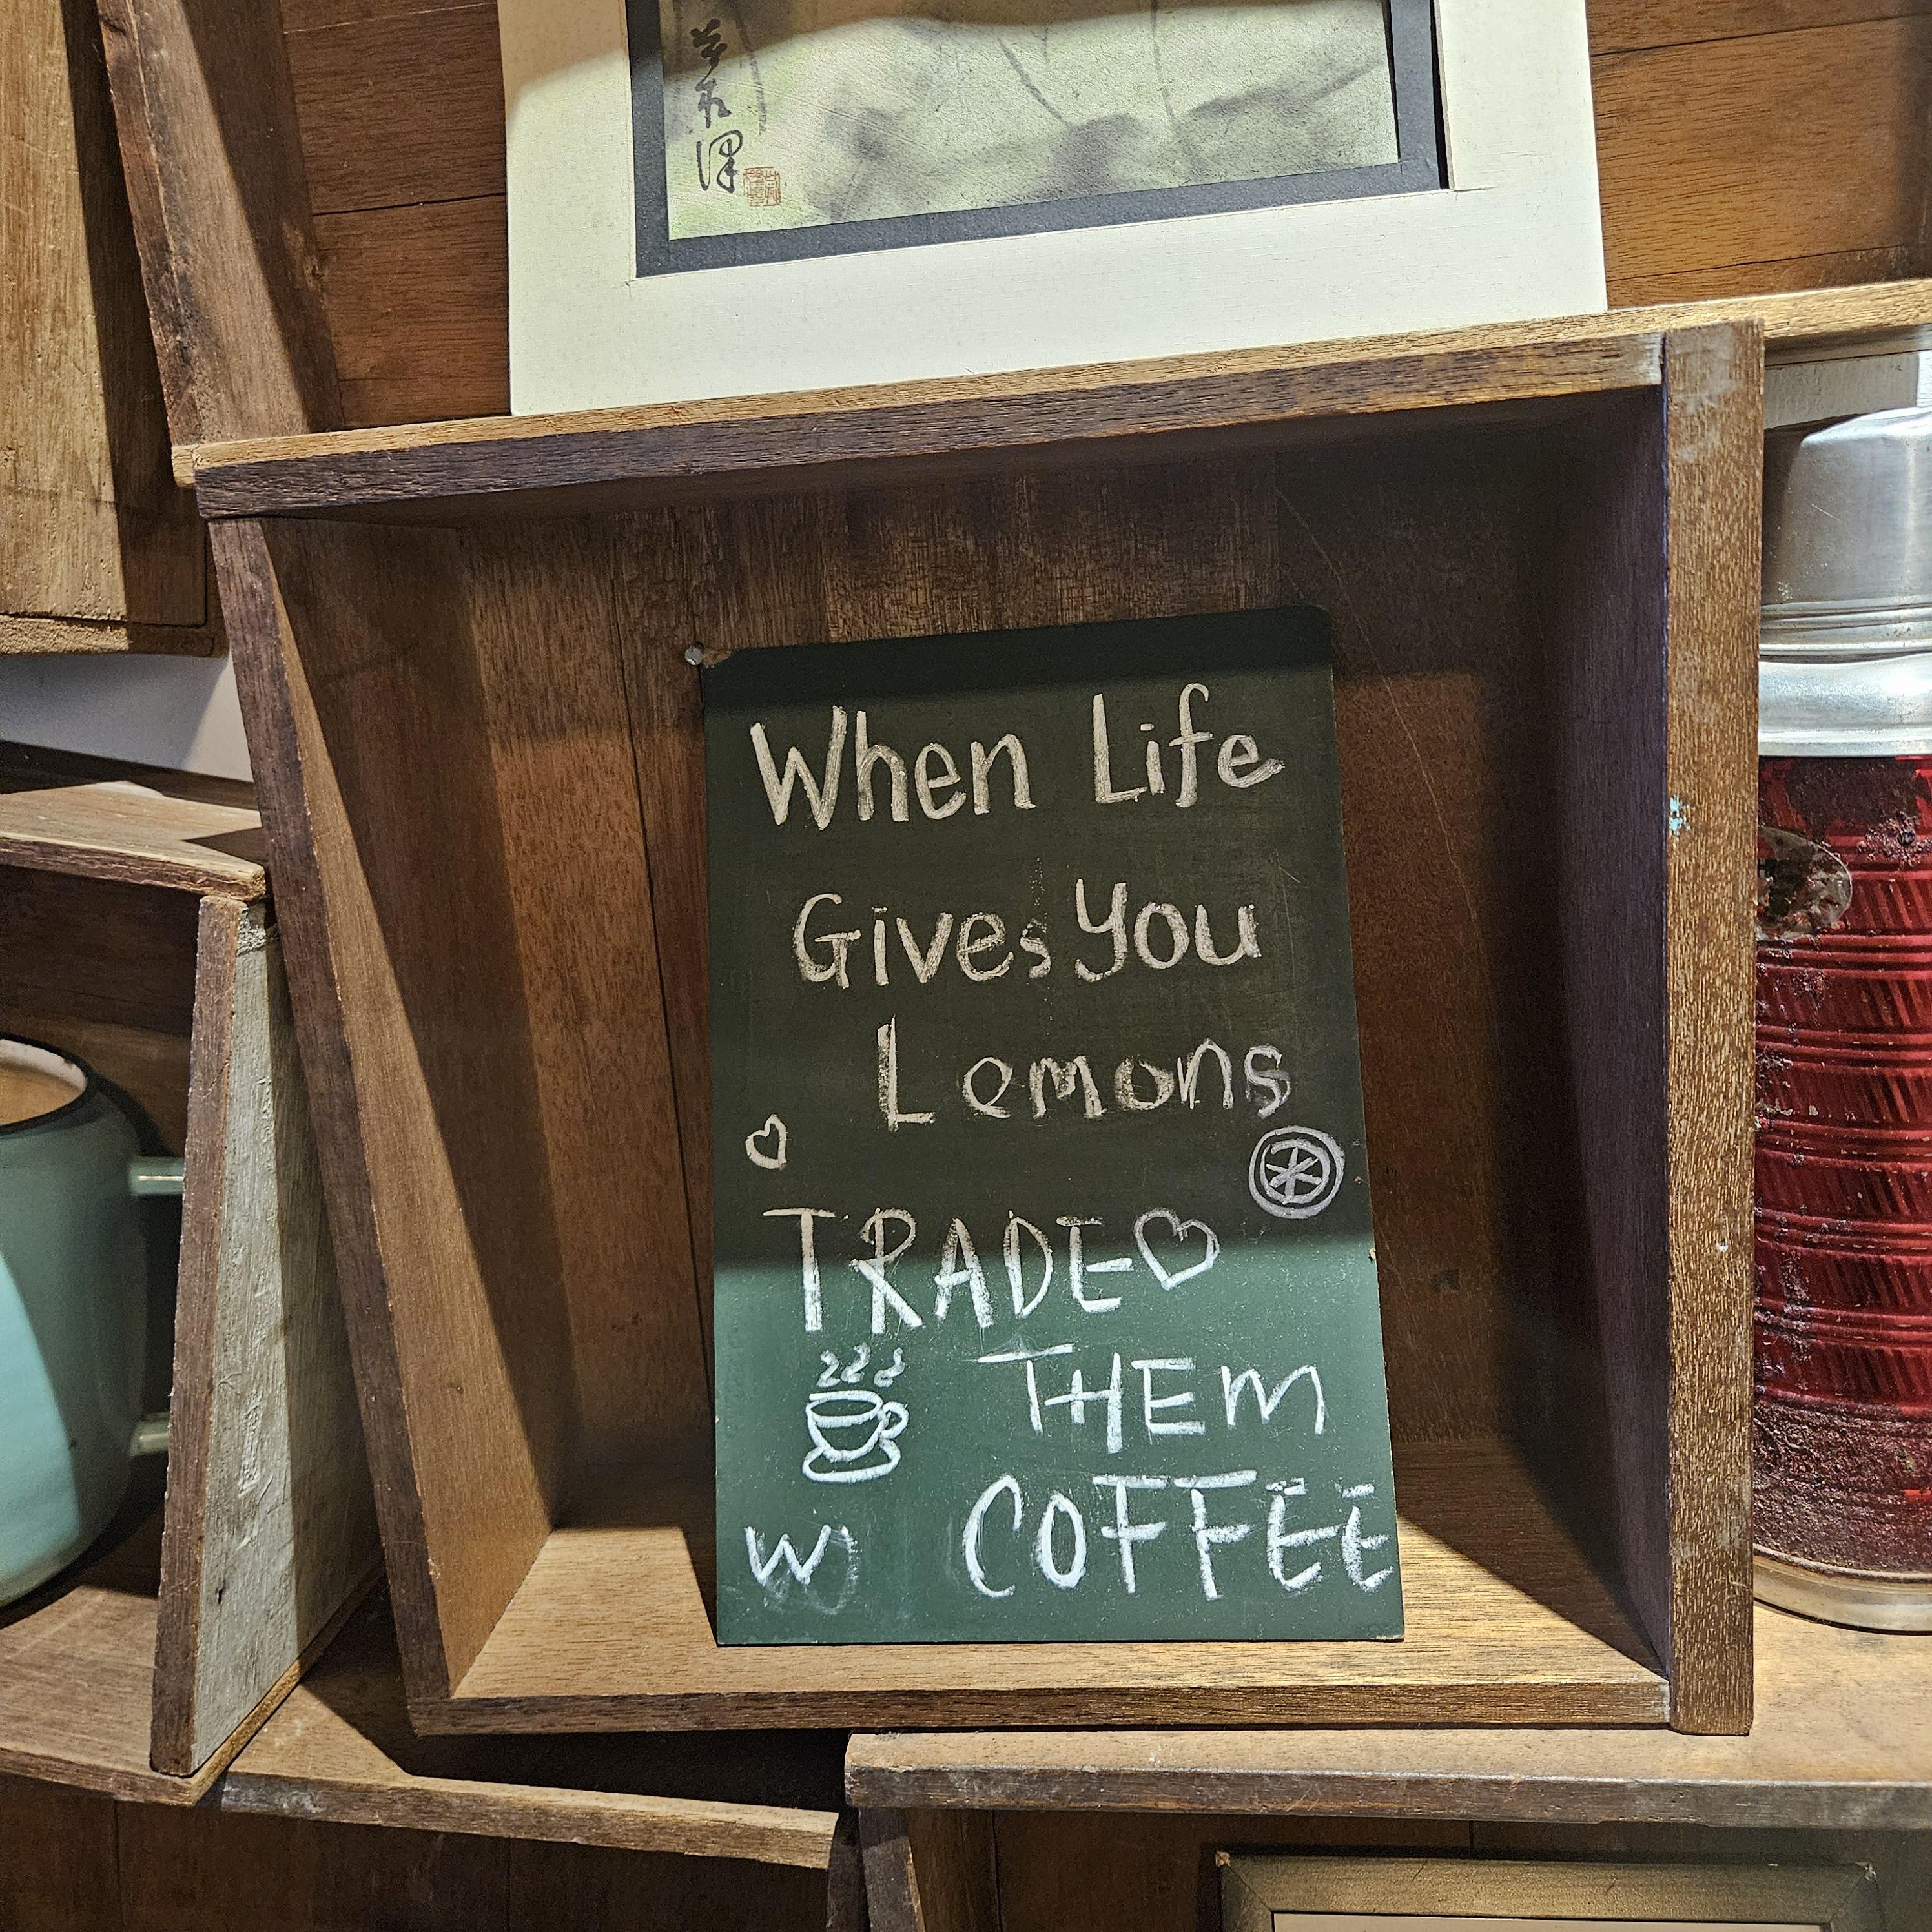 When Life
Gives You
Lemons
TRADE
THEM
W COFFEE